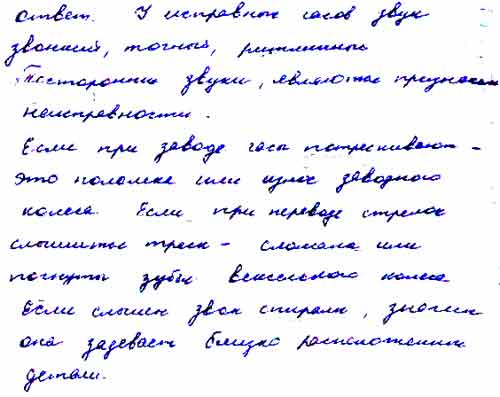 ответ. У исправных часов звук
звонкий, точный, ритмичный
Посторонние звуки, являются признаком
неисправности.
Если при заводе часы потрескивают -
это поломка или износ заводного
колеса. Если при переводе стрелок
слышится треск - сломаны или
погнуты зубья вексельного колеса
Если слышен звон спирали, значит
она задевает близко расположенные
детали.